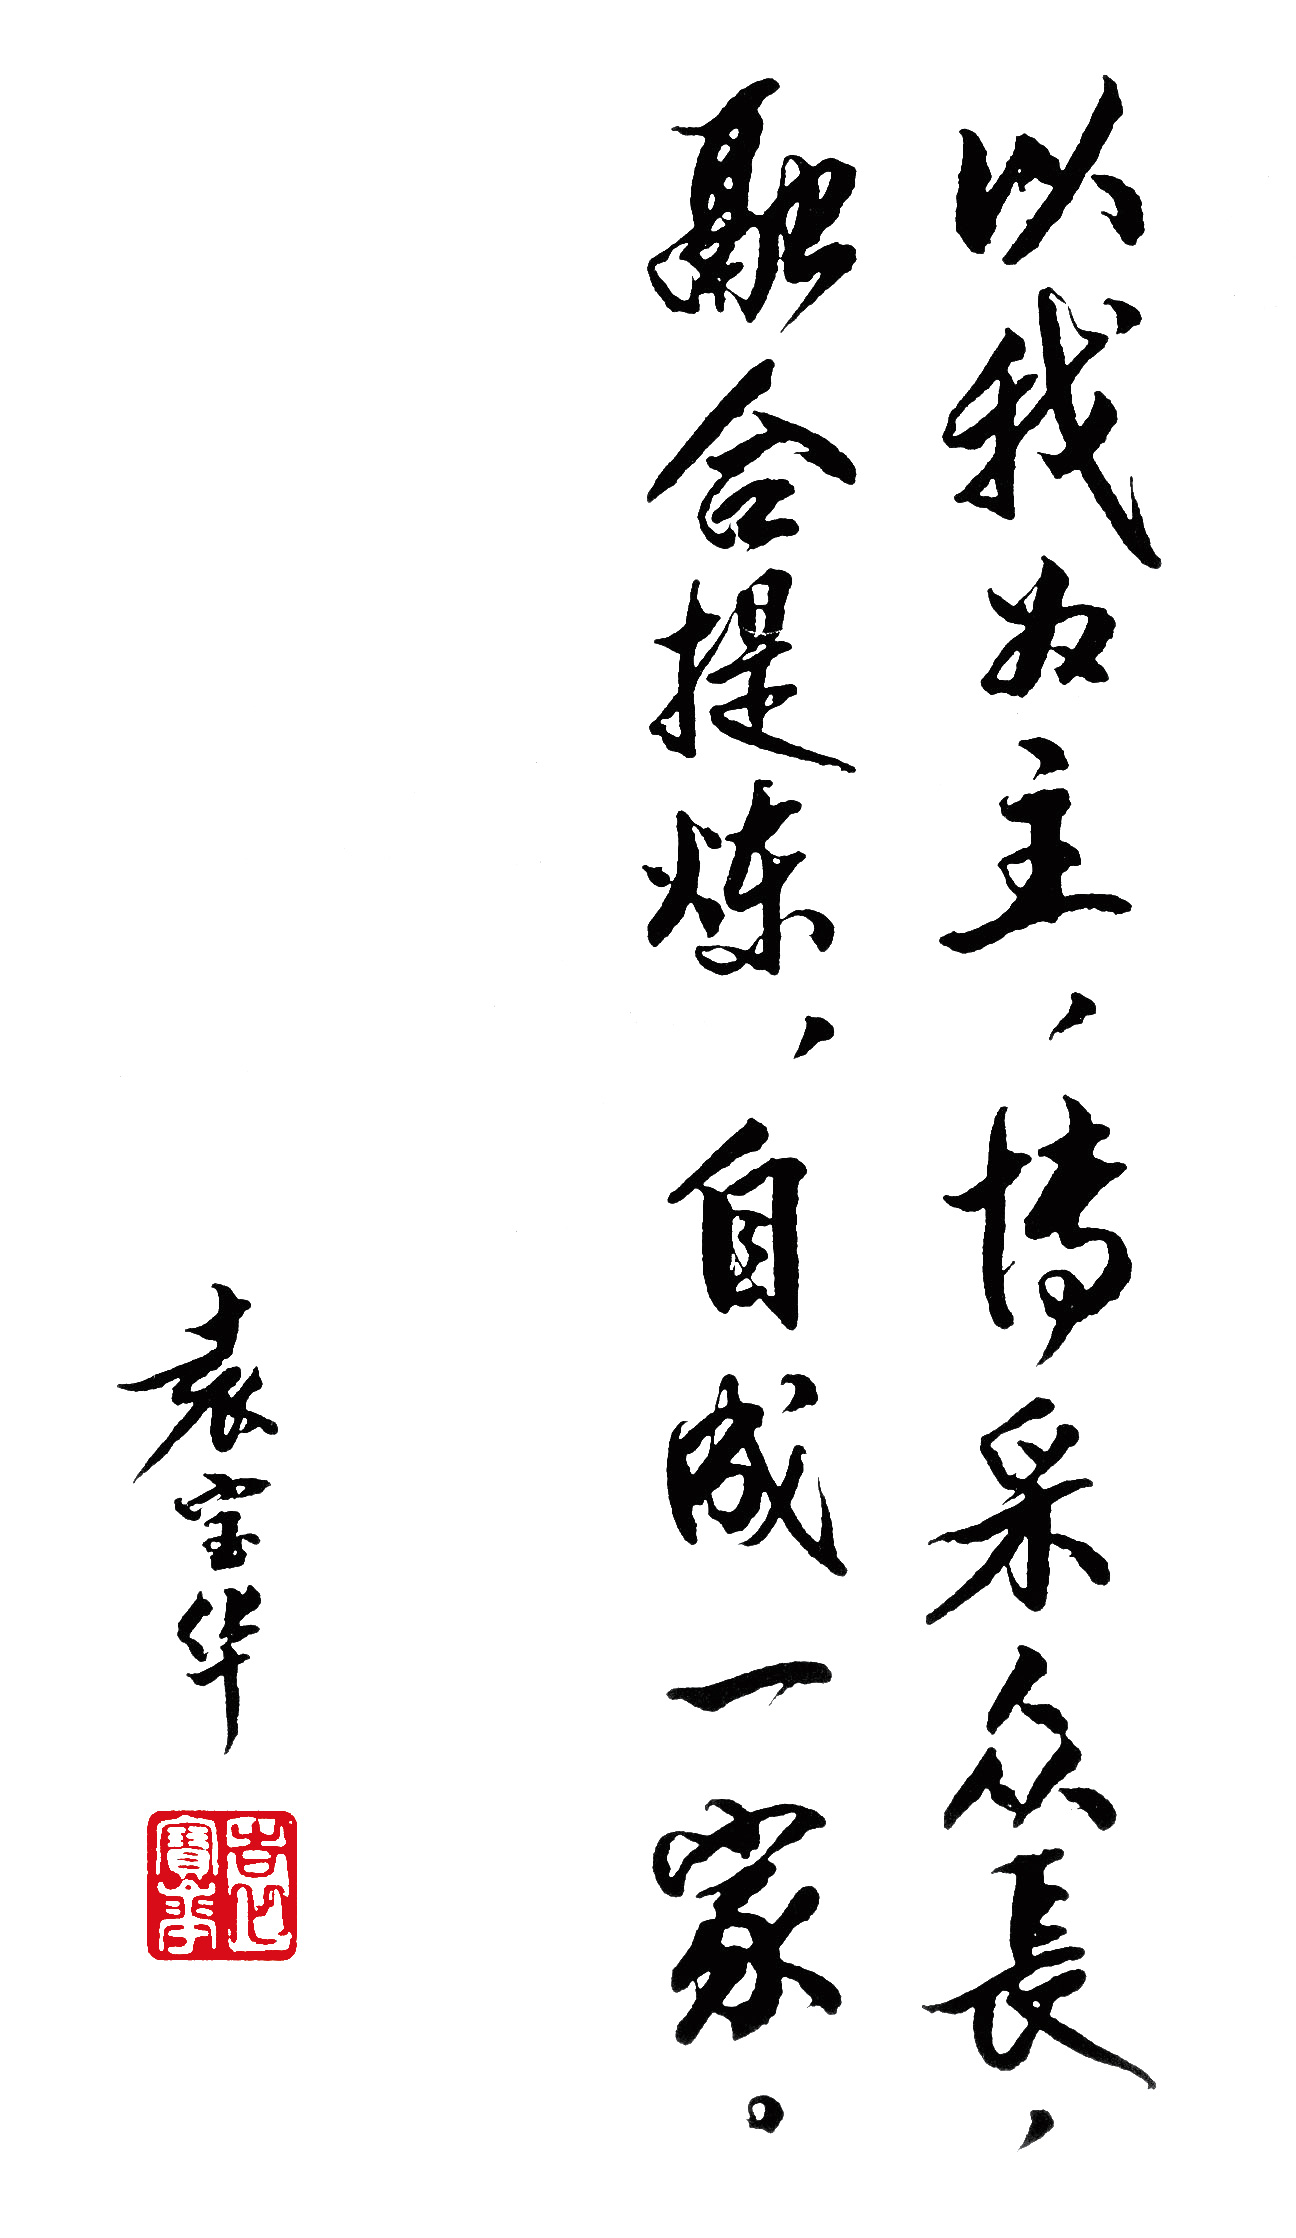 以我为主，博采众長，
融合提炼，自成一家。
袁宝华
袁寶華